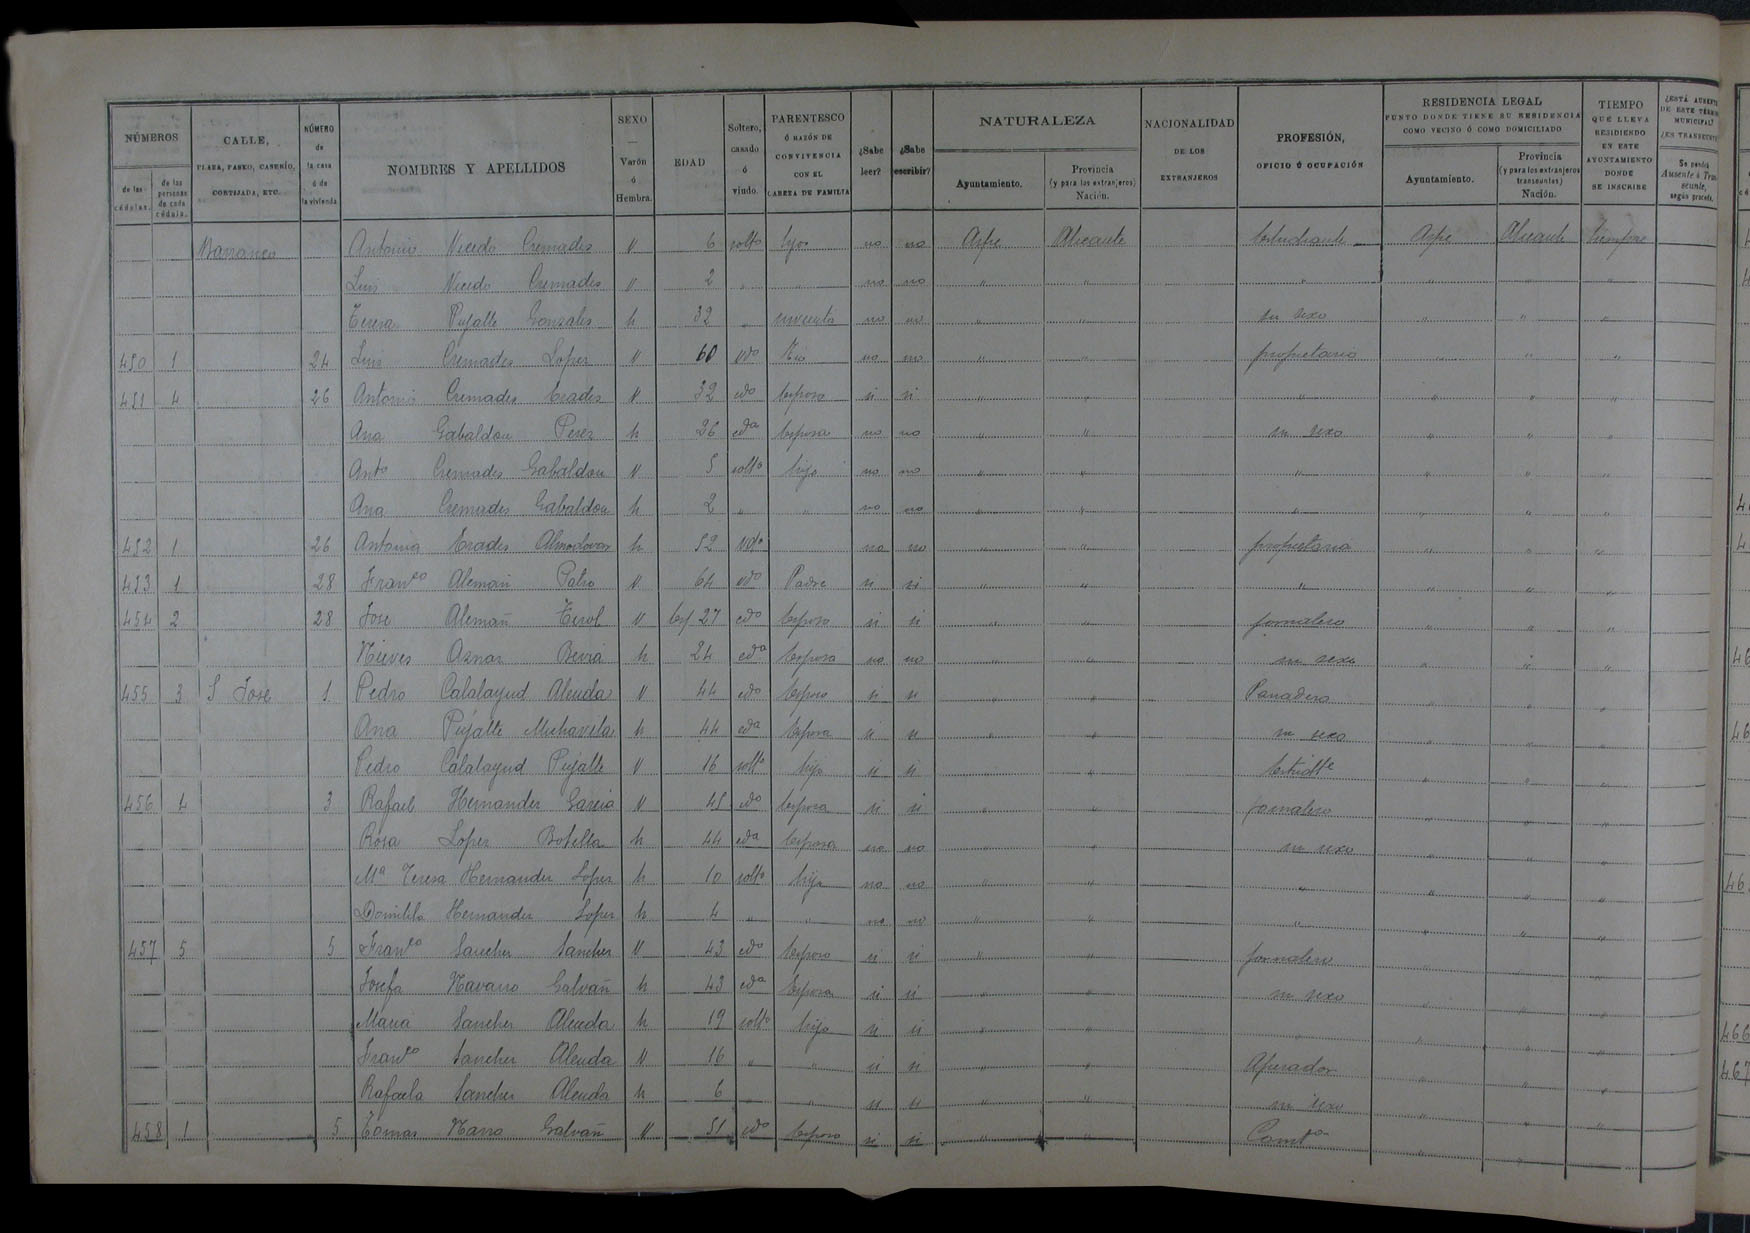 NÚMEROS
de las cédulas.
de las personas de cada cédula.
CALLE,
PLAZA, PASEO, CASERÍO,
CORTIJADA, ETC.
NÚMERO
de
la casa
ó de
la vivienda
NOMBRES Y APELLIDOS
SEXO
Varón
ó
Hembra.
EDAD
Soltero,
casado
ó
viudo.
PARENTESCO
Ó RAZÓN DE
CONVIVENCIA
CON EL
CABEZA DE FAMILIA
¿Sabe leer?
¿Sabe escribir?
NATURALEZA
Ayuntamiento.
Provincia
(y para los extranjeros)
Nación.
NACIONALIDAD
DE LOS
EXTRANJEROS
PROFESIÓN,
OFICIO Ó OCUPACIÓN
RESIDENCIA LEGAL
PUNTO DONDE TIENE SU RESIDENCIA
COMO VECINO Ó COMO DOMICILIADO
Ayuntamiento.
Provincia
(y para los extranjeros
transeuntes)
Nación.
TIEMPO
QUE LLEVA
RESIDIENDO
EN ESTE
AYUNTAMIENTO
DONDE
SE INSCRIBE
Barranco Antonio Nicedo Cremades V 6 solto hijos no no Aspe Alicante Estudiante Aspe Alicante siempre
Luis Nicedo Cremades V 2 " no no " " " " " "
Teresa Pujalte Gonzales h 32 " no no " " su sexo " " "
450 1 24 Luis Cremades Lopez V 60 vdo no no " " propietario " " "
451 4 26 Antonio Cremades Erades V 32 cdo Esposo si si " " " " " "
Ana Gabaldon Perez h 26 cda Esposa no no " " su sexo " " "
Anto Cremades Gabaldon V 5 solto hijo no no " " " " " "
Ana Cremades Gabaldon h 2 " " no no " " " " " "
452 1 26 Antonia Erades Almodovar h 52 vda no no " " propietaria " " "
453 1 28 Franco Alemañ V 64 vdo Padre si si " " " " " "
454 2 28 Jose Alemañ Terol V 27 cdo Esposo si si " " jornalero " " "
Nieves Aznar Beviá h 24 cda Esposa no no " " su sexo " " "
455 3 S Jose 1 Pedro Calatayud Alenda V 44 cdo Esposo si si " " Panadero " " "
Ana Pujalte Michavila h 44 cda Esposa si si " " su sexo " " "
Pedro Calatayud Pujalte V 16 solto hijo si si " " Estudte " " "
456 4 3 Rafael Hernandez Garcia V 45 cdo Esposo si si " " jornalero " " "
Rosa Lopez Botella h 44 cda Esposa no no " " su sexo " " "
Ma Teresa Hernandez Lopez h 10 solto hija no no " " " " " "
Domitila Hernandez Lopez h 4 " " no no " " " " " "
457 5 5 Franco Sanchez Sanchez V 43 cdo Esposo si si " " jornalero " " "
Josefa Navarro Galvañ h 43 cda Esposa si si " " su sexo " " "
Maria Sanchez Alenda h 19 solto hija si si " " " " " "
Franco Sanchez Alenda V 16 " " si si " " Aperador " " "
Rafaela Sanchez Alenda h 6 " " si si " " su sexo " " "
458 1 5 Tomas Galvañ V 51 cdo Esposo si si " " " " "